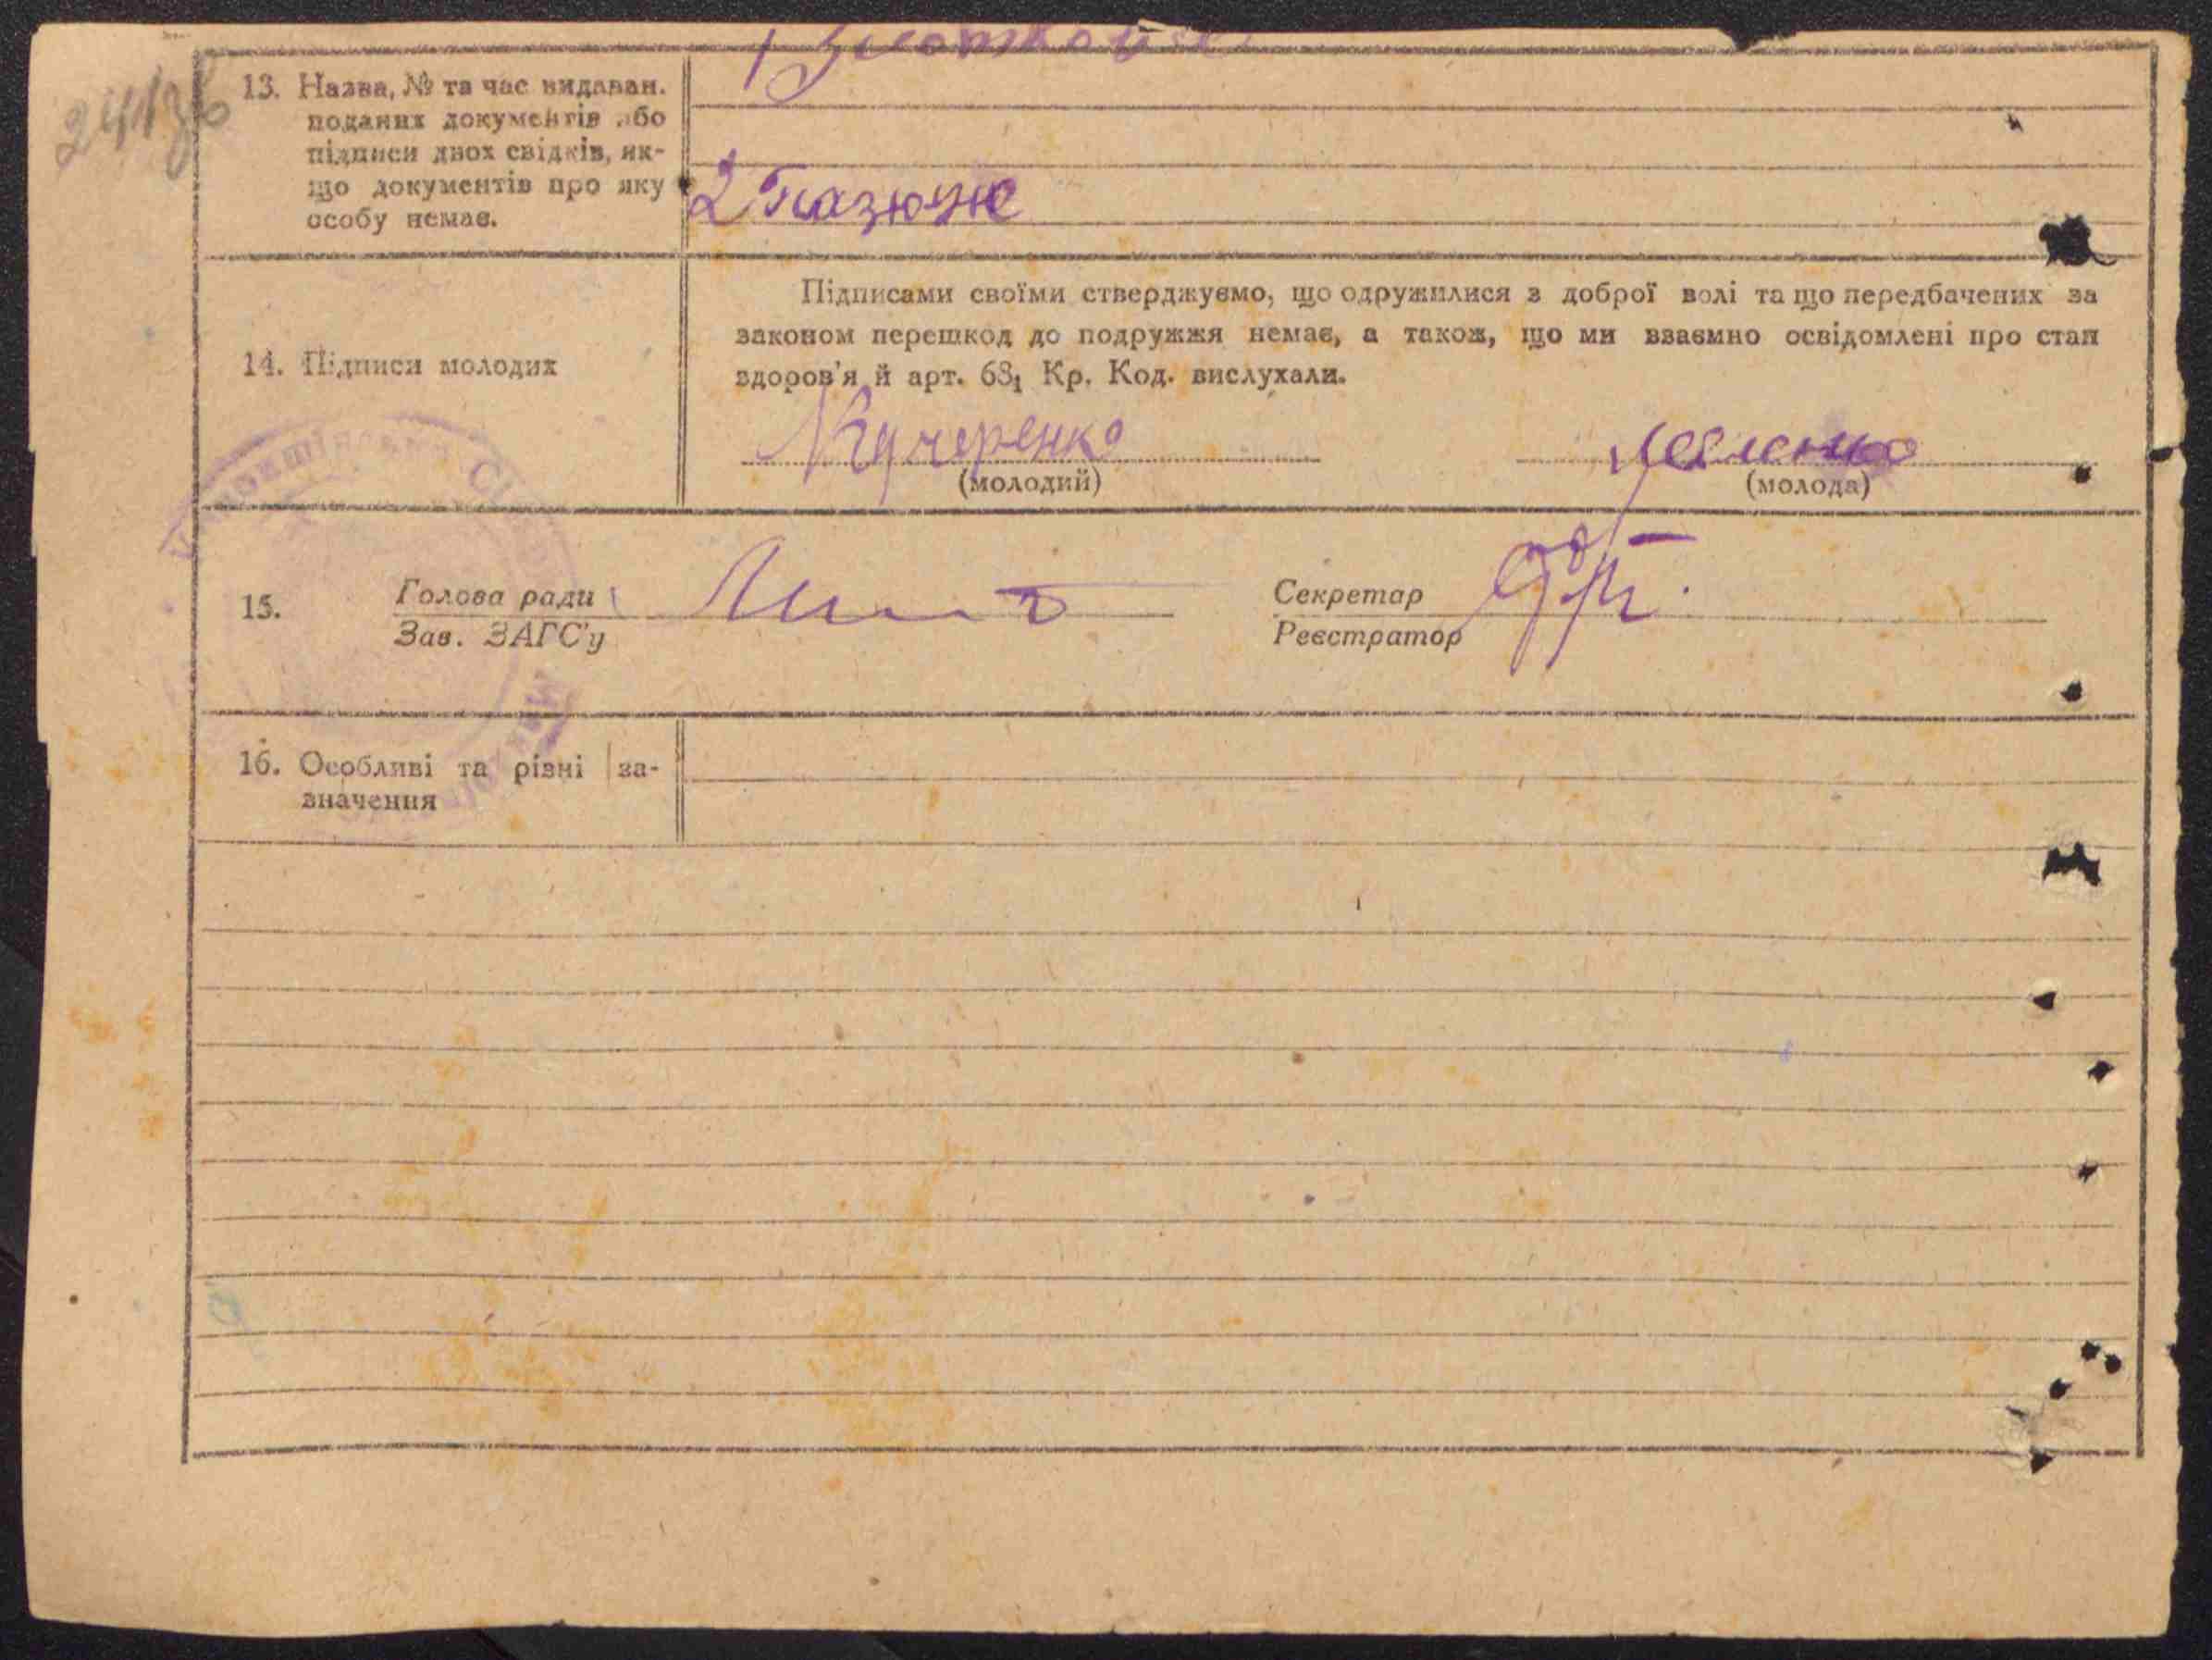 241зв
13. Назва, № та час видаван.
поданих документів або
підписи двох свідків, як-
що документів про яку
особу немає.
2
14. Підписи молодих
Підписами своїми стверджуємо, що одружилися з доброї волі та що передбачених за
законом перешкод до подружжя немає, а також, що ми взаємно освідомлені про стан
здоров'я й арт. 68₁ Кр. Код. вислухали.
Кучеренко
(молодий)
(молода)
15.
Голова ради
Зав. ЗАГС'у
Секретар
Реєстратор
16. Особливі та різні за-
значення